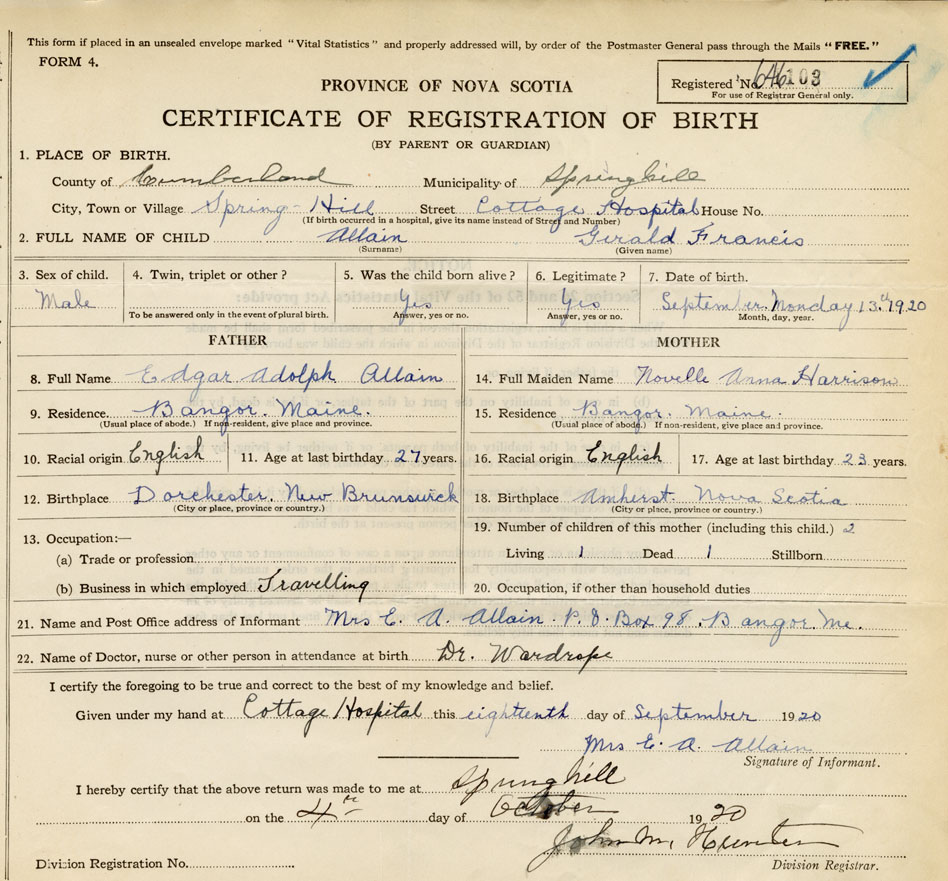 This form if placed in an unsealed envelope marked "Vital Statistics" and properly addressed will, by order of the Postmaster General pass through the Mails "FREE."
FORM 4.
Registered No. 646103
For use of Registrar General only.
PROVINCE OF NOVA SCOTIA
CERTIFICATE OF REGISTRATION OF BIRTH
(BY PARENT OR GUARDIAN)
1. PLACE OF BIRTH.
County of Cumberland Municipality of Springhill
City, Town or Village Spring-Hill Street Cottage Hospital House No.
(If birth occurred in a hospital, give its name instead of Street and Number)
2. FULL NAME OF CHILD Allain Gerald Francis
(Surname) (Given name)
3. Sex of child. 4. Twin, triplet or other? 5. Was the child born alive? 6. Legitimate? 7. Date of birth.
Male Yes Yes September. Monday 13.th 1920
To be answered only in the event of plural birth. Answer, yes or no. Answer, yes or no. Month, day, year.
FATHER MOTHER
8. Full Name Edgar Adolph Allain 14. Full Maiden Name Novelle Anna Harrison
9. Residence. Bangor. Maine. 15. Residence Bangor. Maine.
(Usual place of abode.) If non-resident, give place and province. (Usual place of abode.) If non-resident, give place and province.
10. Racial origin English 11. Age at last birthday 27 years. 16. Racial origin English 17. Age at last birthday 23 years.
12. Birthplace Dorchester. New Brunswick 18. Birthplace Amherst. Nova Scotia
(City or place, province or country.) (City or place, province or country.)
19. Number of children of this mother (including this child.) 2
13. Occupation:—
(a) Trade or profession Living 1 Dead 1 Stillborn
(b) Business in which employed Travelling 20. Occupation, if other than household duties
21. Name and Post Office address of Informant Mrs E. A. Allain. P.O. Box 98. Bangor. Me.
22. Name of Doctor, nurse or other person in attendance at birth Dr. Wardrope
I certify the foregoing to be true and correct to the best of my knowledge and belief.
Given under my hand at Cottage Hospital this eighteenth day of September 1920
Mrs E. A. Allain
Signature of Informant.
I hereby certify that the above return was made to me at Springhill
on the 4th day of October 1920
John M. Hunter
Division Registration No. Division Registrar.